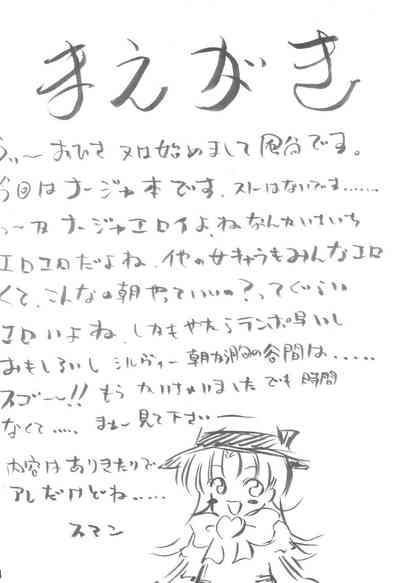 まえがき
うぃ〜おひさ 又は始めまして 風谷です。
今回はナージャ本です、ストーリーはないです……
いや〜ナージャエロイよ、ねなんかいちいち
エロエロだよね、他の女キャラもみんなエロ
くて、こんなの朝やっていいの?ってぐらい
エロいよね、しかもやたらテンポ早いし
おもしろいし シルヴィー 朝から胸の谷間は、……
スゴ〜〜!! もう かいちゃいました でも 時間
なくて…… まぁ〜見て下さい――
内容はありきたりで
アレだけどね……
スマン